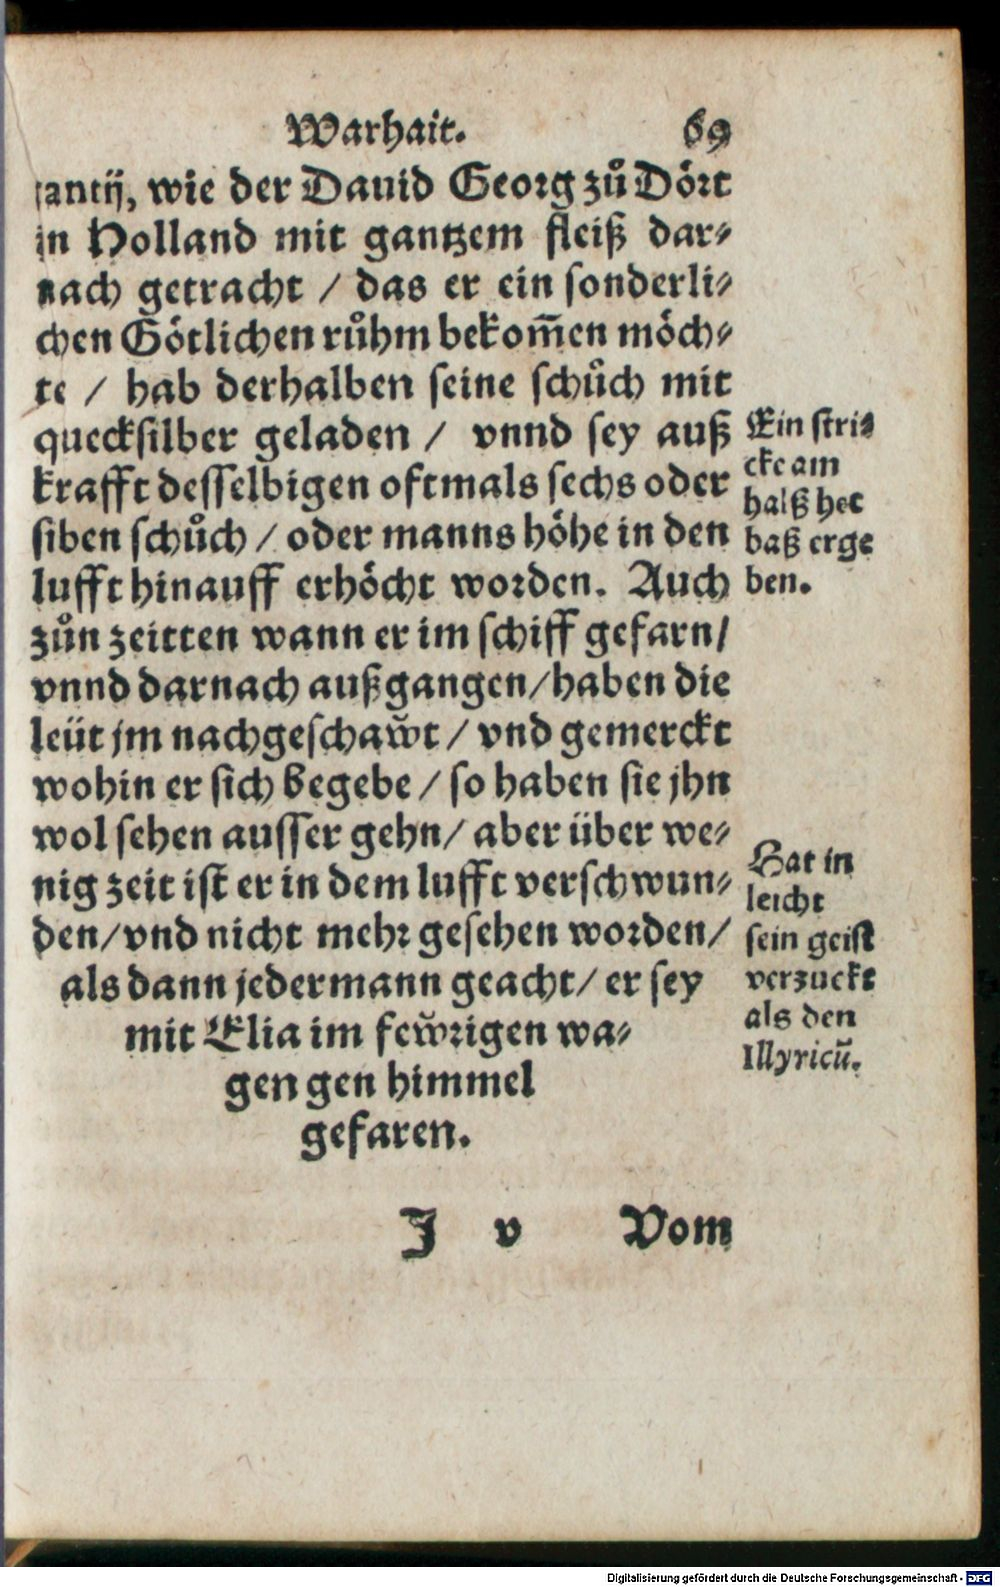 Warhait. 69
santij, wie der Dauid Georg zů Dört
in Holland mit gantzem fleiß dar⸗
nach getracht / das er ein sonderli⸗
chen Götlichen růhm bekom̃en möch⸗
te / hab derhalben seine schůch mit
quecksilber geladen / vnnd sey auß
krafft desselbigen oftmals sechs oder
siben schůch / oder manns höhe in den
lufft hinauff erhöcht worden. Auch
zůn zeitten wann er im schiff gefarn /
vnnd darnach außgangen / haben die
leüt jm nachgeschaw̃t / vnd gemerckt
wohin er sich begebe / so haben sie jhn
wol sehen ausser gehn / aber über we⸗
nig zeit ist er in dem lufft verschwun⸗
den / vnd nicht mehr gesehen worden /
als dann jedermann geacht / er sey
mit Elia im few̃rigen wa⸗
gen gen himmel
gefaren.
Ein stri⸗
cke am
halß het
baß erge
ben.
Hat in
leicht
sein geist
verzuckt
als den
Illyricũ.
J v Vom
Digitalisierung gefördert durch die Deutsche Forschungsgemeinschaft - DFG